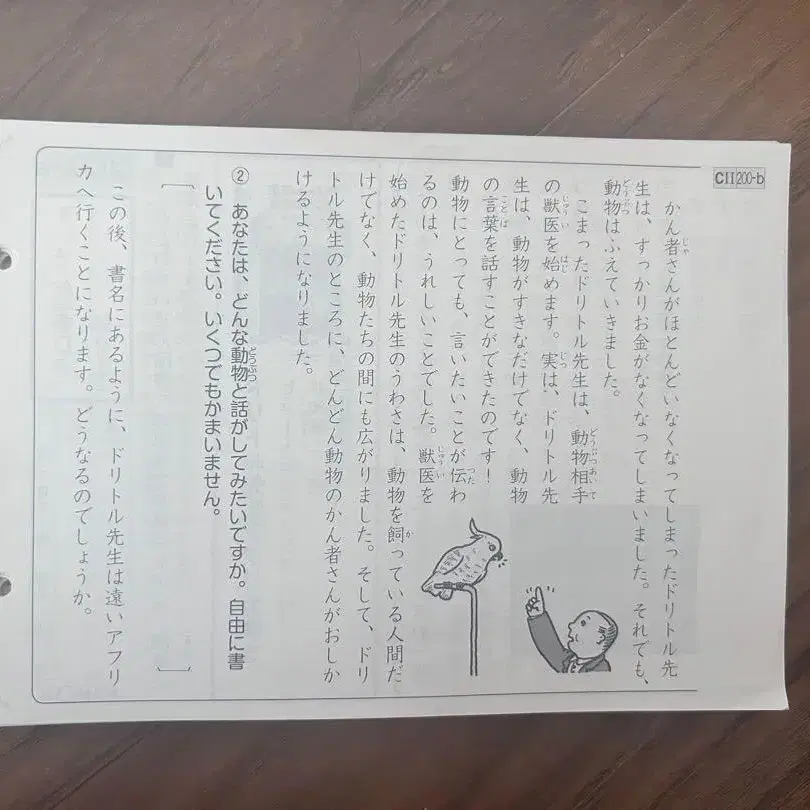 CII 200-b
かん者さんがほとんどいなくなってしまったドリトル先
生は、すっかりお金がなくなってしまいました。それでも、
動物はふえていきました。
こまったドリトル先生は、動物相手
の獣医を始めます。実は、ドリトル先
生は、動物がすきなだけでなく、動物
の言葉を話すことができたのです！
動物にとっても、言いたいことが伝わ
るのは、うれしいことでした。獣医を
始めたドリトル先生のうわさは、動物を飼っている人間だ
けでなく、動物たちの間にも広がりました。そして、ドリ
トル先生のところに、どんどん動物のかん者さんがおしか
けるようになりました。
② あなたは、どんな動物と話がしてみたいですか。自由に書
いてください。いくつでもかまいません。
［ ］
この後、書名にあるように、ドリトル先生は遠いアフリ
カへ行くことになります。どうなるのでしょうか。